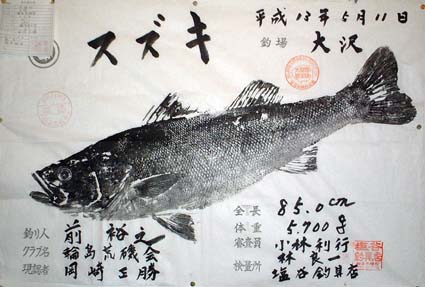 スズキ
平成13年5月11日
釣場 大沢
全長 85.0cm
体重 5.700g
審査員 小林利行
林良一
検量所 塩谷釣具店
釣り人 前 裕之
クラブ名 輪島荒磯会
現認者 岡崎正勝